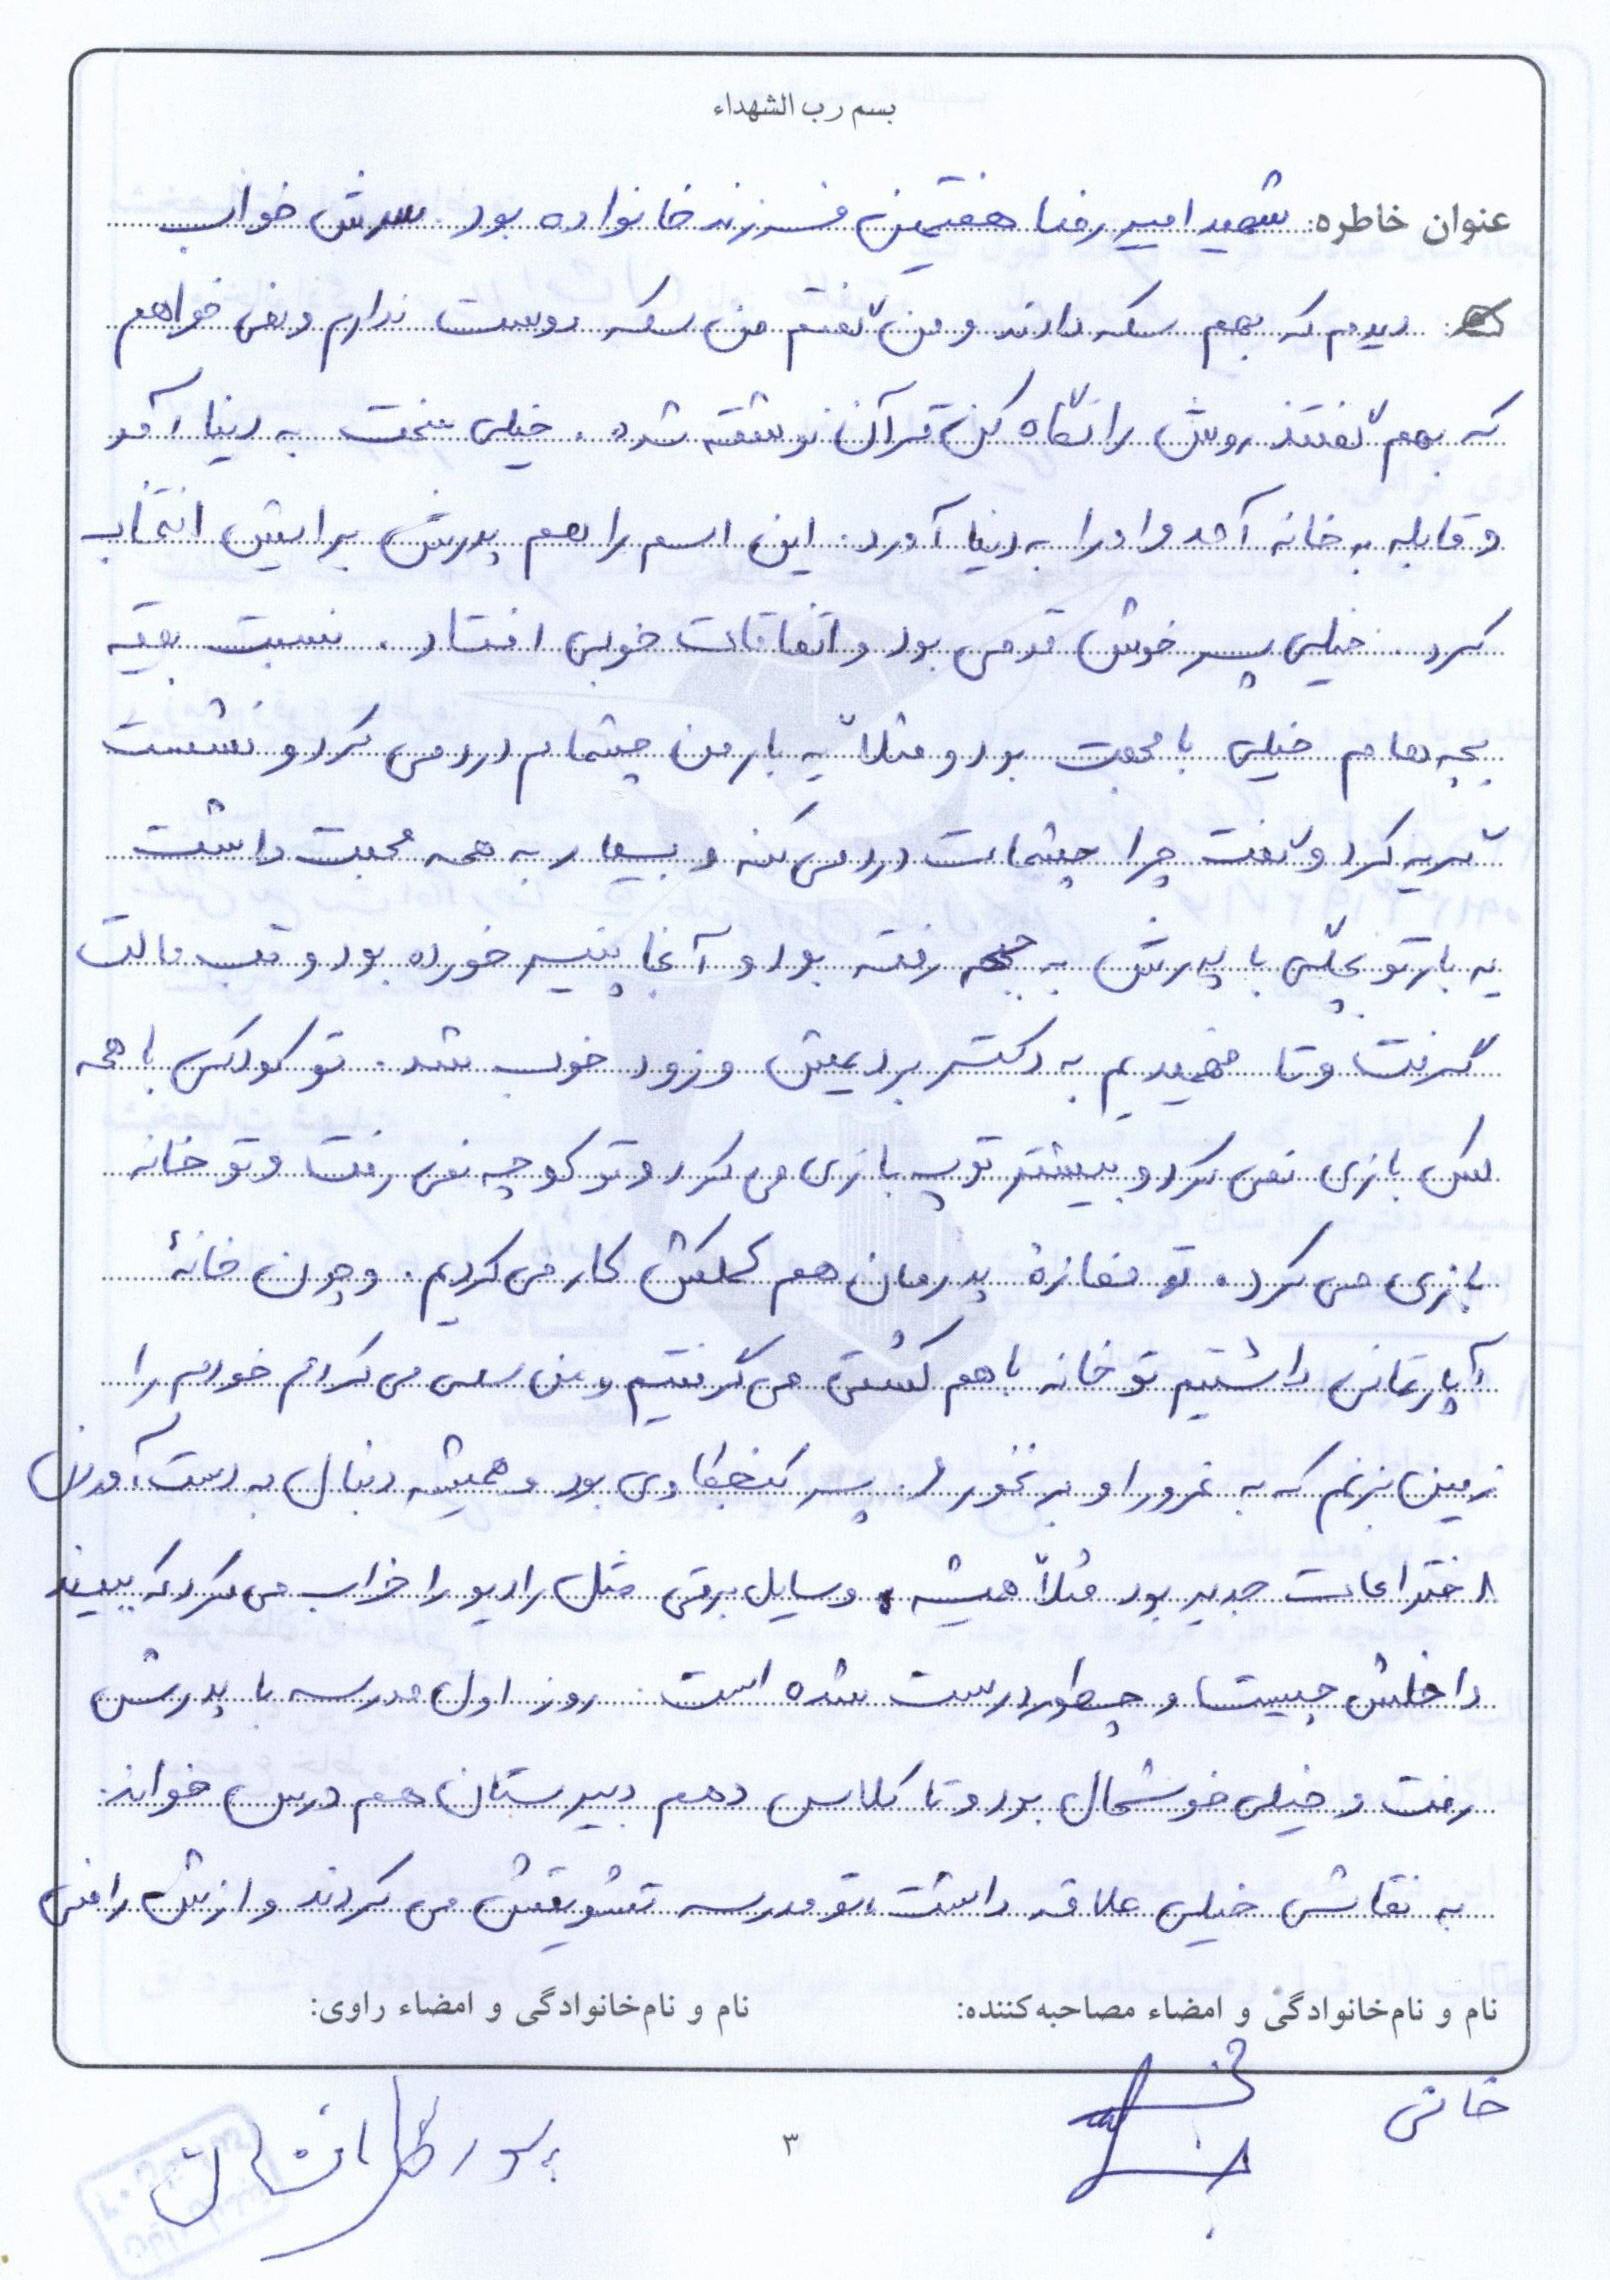 بسم رب الشهداء
عنوان خاطره: شهید امیر رضا هفتمین فرزند خانواده بود. سرش خواب
دیدم که بهم سکه دادند و من گفتم من سکه دوست ندارم و نمی خواهم
که بهم گفتند روش را نگاه کن قرآن نوشته شده. خیلی سخت به دنیا آمد
و قابله به خانه آمد و او را به دنیا آورد. این اسم را هم پدرش برایش انتخاب
کرد. خیلی پسر خوش قدمی بود و اتفاقات خوبی افتاد. نسبت بقیه
بچه هام خیلی با محبت بود و مثلاً یه بار من چشمام درد می کرد و نشست
گریه کرد و گفت چرا چشمات درد می کنه و بسیار به همه محبت داشت
یه بار تو بچگی با پدرش به جبهه رفته بود و آنجا پنیر خورده بود و تب مالت
گرفت و تا فهمیدیم به دکتر بردیمش و زود خوب شد. تو کودکی با همه
کس بازی نمی کرد و بیشتر توپ بازی می کرد و تو کوچه نمی رفت و تو خانه
بازی می کرد. تو مغازهٔ پدرمان هم کمکش کار می کردیم. و چون خانهٔ
آپارتمانی داشتیم تو خانه با هم کشتی می گرفتیم و من سعی می کردم خودم را
زمین بزنم که به غرور او بر نخورد. پسر کنجکاوی بود و همیشه دنبال به دست آوردن
اختراعات جدید بود مثلاً همیشه وسایل برقی مثل رادیو را خراب می کرد که ببیند
داخلش چیست و چطور درست شده است. روز اول مدرسه با پدرش
رفت و خیلی خوشحال بود و تا کلاس دهم دبیرستان هم درس خواند.
به نقاشی خیلی علاقه داشت، تو مدرسه تشویقش می کردند و ازش راضی
نام و نام‌خانوادگی و امضاء مصاحبه‌کننده:
نام و نام‌خانوادگی و امضاء راوی:
پور گل افشان
۳